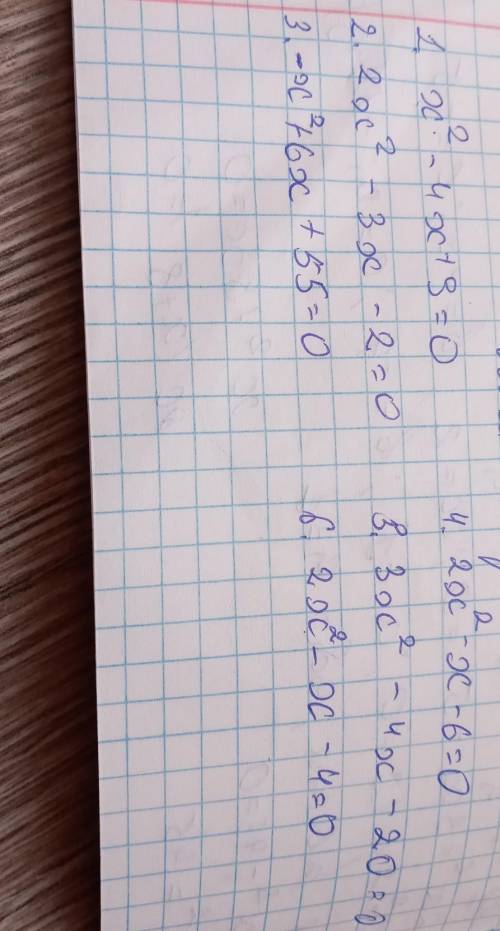 1. x² - 4x + 3 = 0
2. 2x² - 3x - 2 = 0
3. -x² + 6x + 55 = 0
4. 2x² - x - 6 = 0
5. 3x² - 4x - 20 = 0
6. 2x² - x - 4 = 0